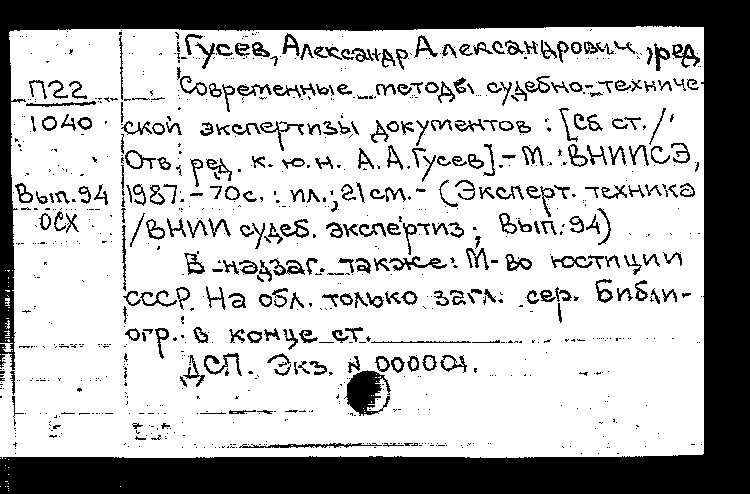 Гусев, Александр Александрович, ред
П22 Современные методы судебно-техниче-
1040 ской экспертизы документов : [Сб ст. /
Отв. ред. к. ю. н. А. А. Гусев]. - М. : ВНИИСЭ,
Вып. 94 1987. - 70 с. : ил.; 21 см. - (Эксперт. техника
ОСХ /ВНИИ судеб. экспертиз; Вып. 94)
В надзаг. также: М-во юстиции
СССР. На обл. только загл. сер. Библи-
огр. в конце ст.
ДСП. Экз. N 000001.